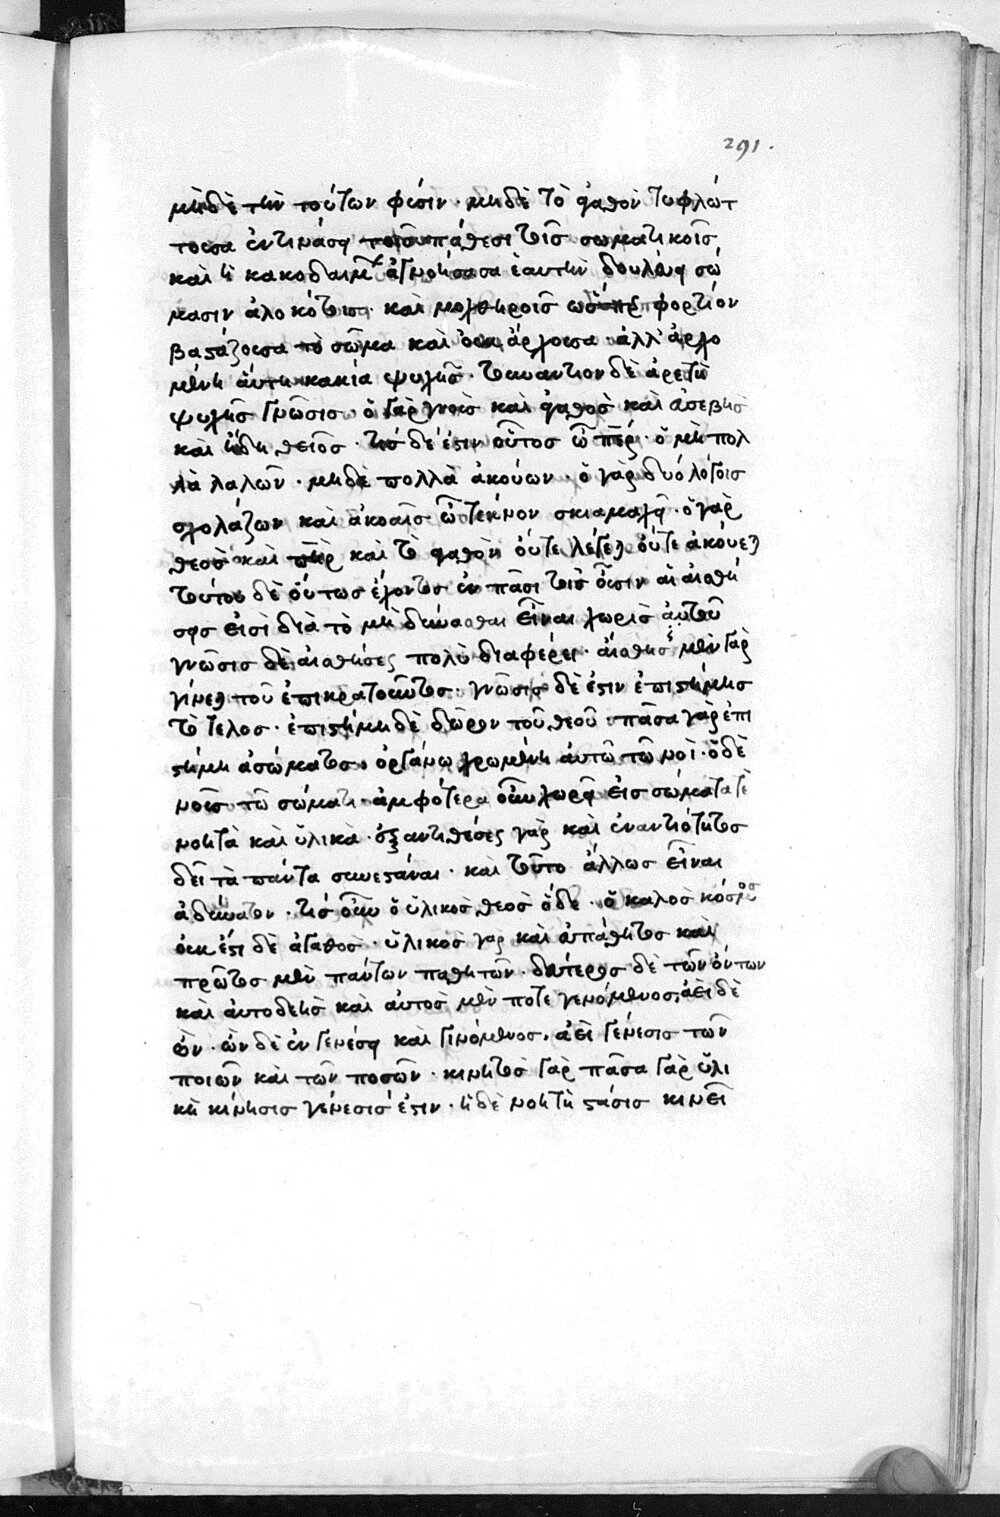 291.
μηδὲ τὴν τούτων φύσιν· μηδὲ τὸ ἀγαθὸν τυφλώτ
τουσα ἐντινάσσει τοῖς πάθεσι τοῖς σωματικοῖς
καὶ ἡ κακοδαίμων ἀγνοήσασα ἑαυτὴν δουλεύει σώ
μασιν ἀλοκότοις· καὶ μοχθηροῖς ὥσπερ φορτίον
βαστάζουσα τὸ σῶμα καὶ οὐκ ἄρχουσα ἀλλ' ἀρχο
μένη αὕτη κακία ψυχῆς· τοὐναντίον δὲ ἀρετὴ
ψυχῆς γνῶσις· ὁ γὰρ γνοὺς καὶ ἀγαθὸς καὶ ἀσεβὴς
καὶ ἤδη θεῖος· τίς δέ ἐστιν οὗτος ὦ περ· ὁ μὴ πολ
λὰ λαλῶν· μηδὲ πολλὰ ἀκούων· ὁ γὰρ δυό λόγοις
σχολάζων καὶ ἀκοαῖς ὦ τέκνον σκιαμαχεῖ· ὁ γὰρ
θεὸς καὶ πηρ καὶ τὸ ἀγαθὸν οὔτε λέγεται οὔτε ἀκούεται
τούτου δὲ οὕτως ἔχοντος ἐν πᾶσι τοῖς οὖσιν αἱ αἰσθή
σεις εἰσὶ διὰ τὸ μὴ δύνασθαι εἶναι χωρὶς αὐτοῦ
γνῶσις δὲ αἰσθήσεως πολὺ διαφέρει· αἴσθησις μὲν γὰρ
γίνεται τοῦ ἐπικρατοῦντος· γνῶσις δέ ἐστιν ἐπιστήμης
τὸ τέλος· ἐπιστήμη δὲ δῶρον τοῦ θεοῦ· πᾶσα γὰρ ἐπι
στήμη ἀσώματος· ὀργάνῳ χρωμένη αὐτῷ τῷ νοΐ· ὁ δὲ
νοῦς τῷ σώματι· ἀμφότερα οὖν χωρεῖ εἰς σώματα τὲ
νοητὰ καὶ ὑλικὰ· ἐξ ἀντιθέσεως γὰρ καὶ ἐναντιότητος
δεῖ τὰ πάντα συνεστάναι· καὶ τοῦτο ἄλλως εἶναι
ἀδύνατον· τίς οὖν ὁ ὑλικὸς θεὸς ὅδε· ὁ καλὸς κόσμος
οὐκ ἔστι δὲ ἀγαθὸς· ὑλικὸς γὰρ καὶ ἀπάθητος καὶ
πρῶτος μὲν πάντων παθητῶν· δεύτερος δὲ τῶν ὄντων
καὶ αὐτοδεὴς καὶ αὐτὸς μὲν ποτε γενόμενος, ἀεὶ δὲ
ὢν· ὢν δὲ ἐν γενέσει καὶ γινόμενος· ἀεὶ γένεσις τῶν
ποιῶν καὶ τῶν ποσῶν· κινητὸς γὰρ πᾶσα γὰρ ὑλι
κὴ κίνησις γένεσίς ἐστιν· ἡ δὲ νοητὴ στάσις κινεῖ